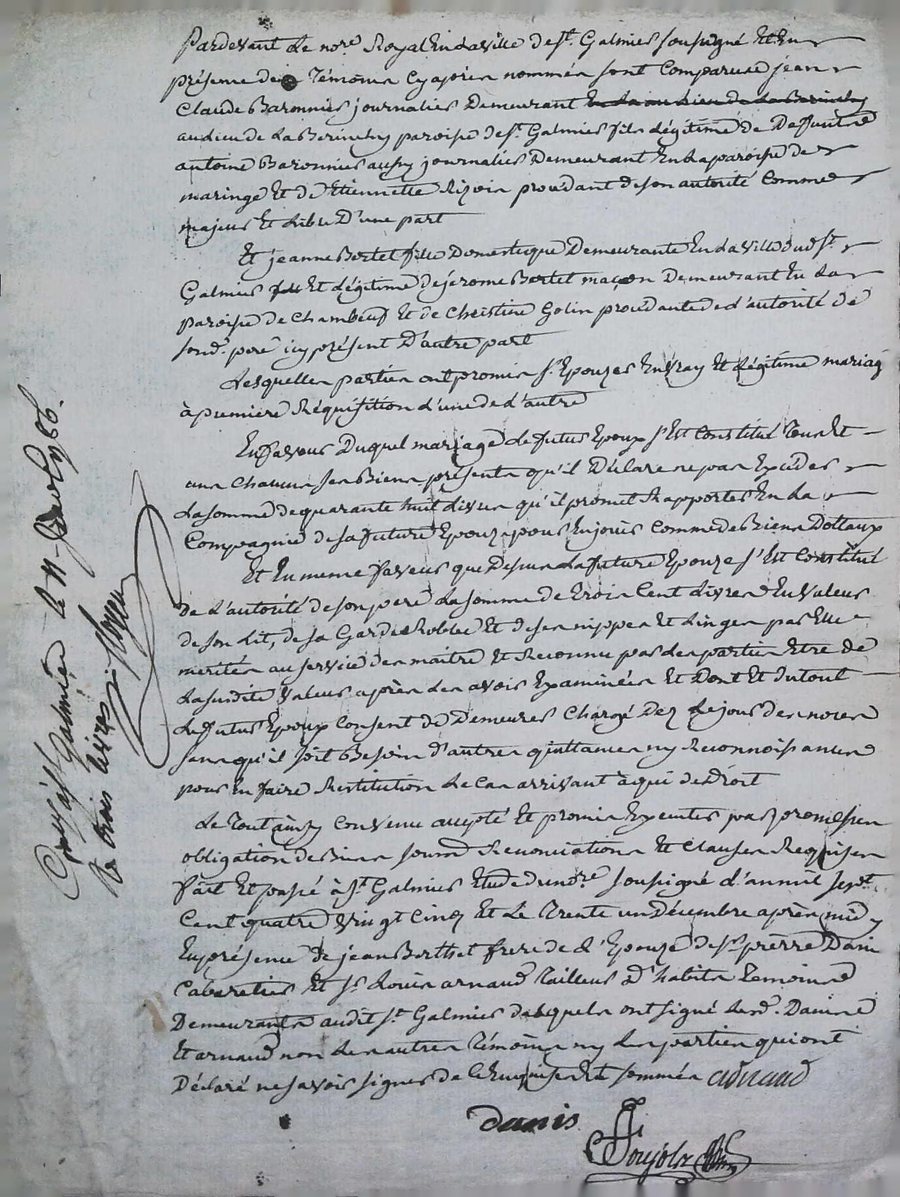 Pardevant Le no.re Royal En La ville de St. Galmier soussigné Et En
présence des Témoins Cy après nommés sont Comparus jean
Claude Baronnier journalier Demeurant
au Lieu de La Berinchy paroisse de St. Galmier fils Légitime de Deffunt
antoine Baronnier aussy journalier Demeurant En La paroisse de
maringe Et de Etiennette procédant de son autorité Comme
majeur Et Libre D'une part
Et jeanne Bertet fille Domestique Demeurante En La Ville dud. St.
Galmier Et Légitime de jerome Bertet maçon Demeurant En La
paroisse de Chambeuf Et de Christine Golin procédante de L'autorité de
sond. pere icy présent D'autre part
Lesquelles parties ont promis s'Epouzer En vray Et Légitime mariage
à premiere Réquisition L'une de L'autre
En faveur Duquel mariage Le futur Epoux s'Est Constitué Tous Et
uns Chacuns ses Biens présents qu'il Déclare ne pas Excéder
La somme de quarante huit Livres qu'il promet Rapporter En La
Compagnie de sa future Epouze pour En jouir Comme de Biens Dottaux
Et En meme faveur que Dessus La future Epouze s'Est Constitué
De L'autorité de son pere La somme de trois Cent Livres En Valeur
de son Lit, de sa Garde Robbe Et de ses nippes Et Linges par Elle
mérités au service des maitres Et Reconnu par Les parties Etre de
La susdite Valeur après Les avoir Examinées Et Dont Et du tout
Le futur Epoux Consent de Demeurer Chargé Dez Le jour des noces
sans qu'il soit Besoin d'autres quittances ny Reconnoissances
pour En faire Restitution Le Cas arrivant à qui de Droit
Le Tout ainsy Convenu accepté Et promis Executer par promesses
obligation de Biens soumo. Renonciations Et Clauses Requises
fait Et passé à St. Galmier Etude du no.re soussigné L'an mil sept
Cent quatre Vingt Cinq Et Le Trente un Décembre après midy
En présence de jean Berthet frere de L'Epouze de sr. pierre Danis
Cabaretier Et sr. Louis arnaud Tailleur D'habits Temoins
Demeurants audit St. Galmier Lesquels ont signé Lesd. Danis
Et arnaud non Les autres Témoins ny Les parties qui ont
Déclaré ne savoir signer de Ce Enquis Et sommés arnaud
danis
Conté à St. Galmier le 11 1786.
Rs trois livres